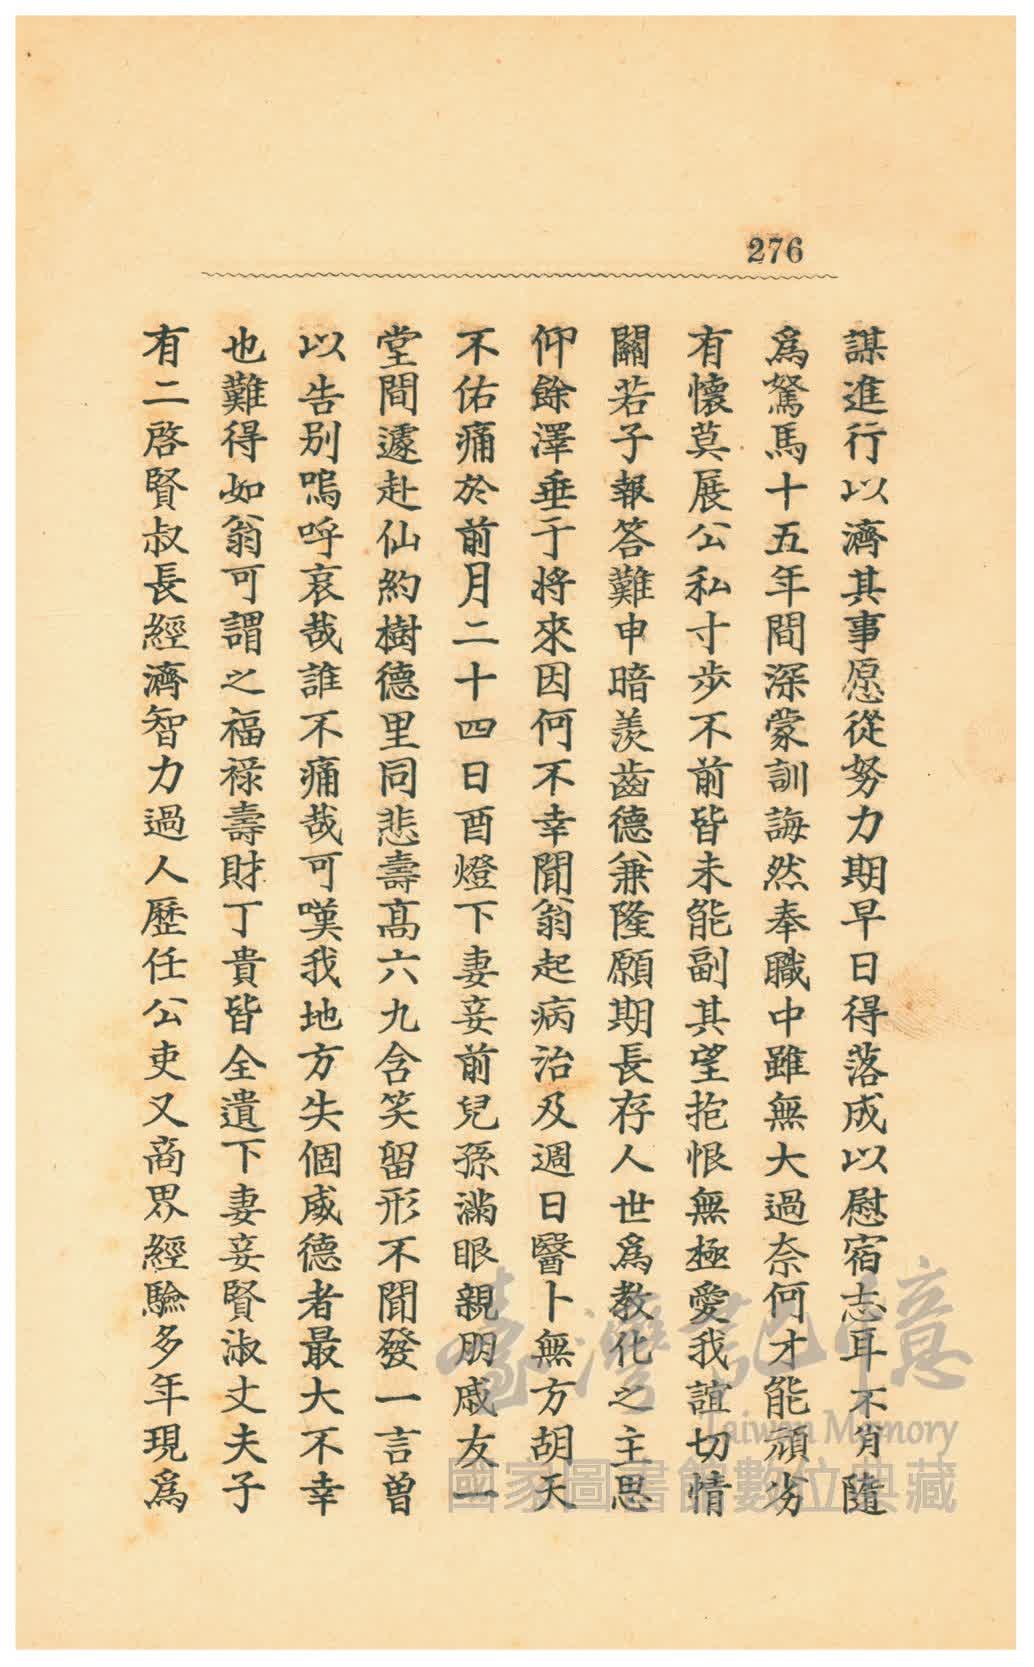 276
謀進行以濟其事愿從努力期早日得落成以慰宿志耳不肖隨
爲駑馬十五年間深蒙訓誨然奉職中雖無大過奈何才能頑劣
有懷莫展公私寸步不前皆未能副其望抱恨無極愛我誼切情
關若子報答難申暗羨齒德兼隆願期長存人世爲教化之主思
仰餘澤垂于將來因何不幸聞翁起病治及週日醫卜無方胡天
不佑痛於前月二十四日酉燈下妻妾前兒孫滿眼親朋戚友一
堂間遽赴仙約樹德里同悲壽高六九含笑留形不聞發一言曾
以告別嗚呼哀哉誰不痛哉可嘆我地方失個威德者最大不幸
也難得如翁可謂之福祿壽財丁貴皆全遺下妻妾賢淑丈夫子
有二啓賢叔長經濟智力過人歷任公吏又商界經驗多年現爲
臺灣記憶
Taiwan Memory
國家圖書館數位典藏